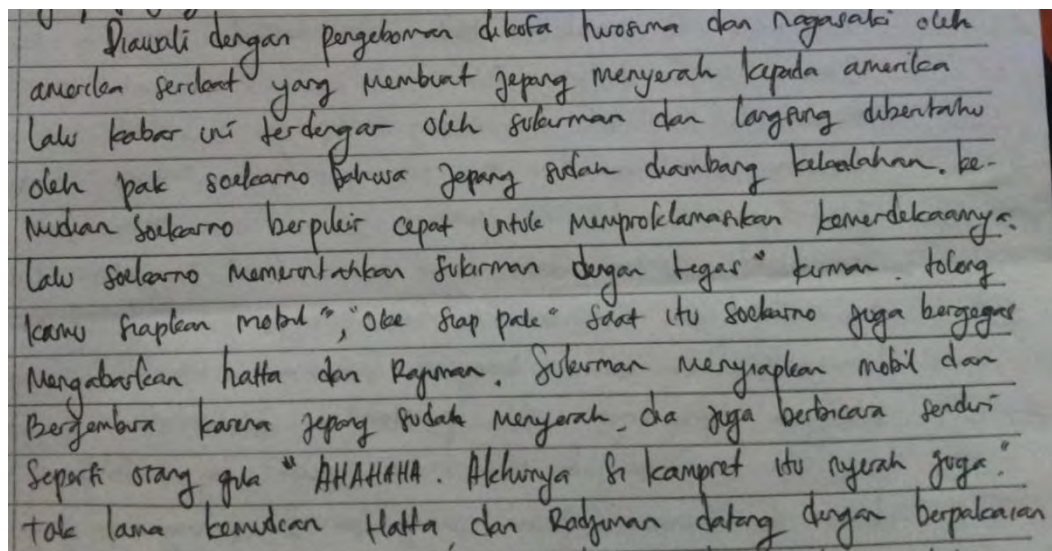 Diawali dengan pengeboman dikota hirosima dan nagasaki oleh
amerika serikat yang membuat jepang menyerah kepada amerika
lalu kabar ini terdengar oleh sukirman dan langsung diberitahu
oleh pak soekarno Bahwa Jepang sudah diambang kekalahan. ke-
mudian Soekarno berpikir cepat untuk memproklamasikan kemerdekaannya.
lalu soekarno memerintahkan sukirman dengan tegas " kirman. tolong
kamu siapkan mobil ", "oke siap pak" saat itu soekarno juga bergegas
Mengabarkan hatta dan Rajiman. Sukirman menyiapkan mobil dan
Bergembira karena jepang sudah menyerah, dia juga berbicara sendiri
seperti orang gila " AHAHAHA. Akhirnya si kampret itu nyerah juga."
tak lama kemudian Hatta dan Radjiman datang dengan berpakaian